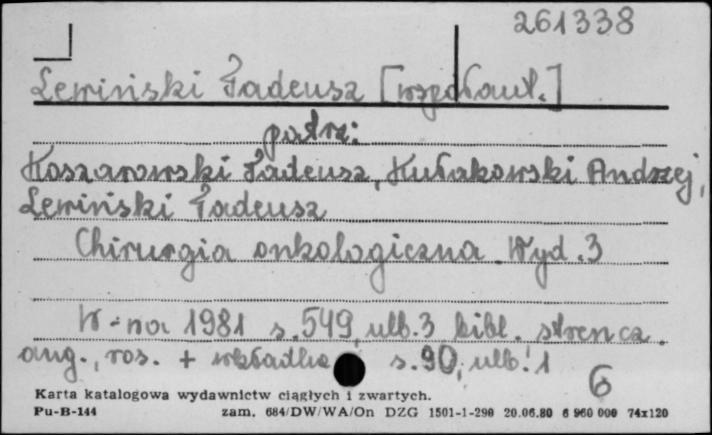 261338
Lewiński Tadeusz [współaut.]
patrz:
Koszarowski Tadeusz, Kułakowski Andrzej,
Lewiński Tadeusz
Chirurgia onkologiczna. Wyd. 3
W-wa 1981 s. 549, ulb. 3 bibl. streszcz.
ang., ros. + wkładka s. 90, ulb. 1
6
Karta katalogowa wydawnictw ciągłych i zwartych.
Pu-B-144 zam. 684/DW/WA/On DZG 1501-1-290 20.06.80 6 960 000 74x120